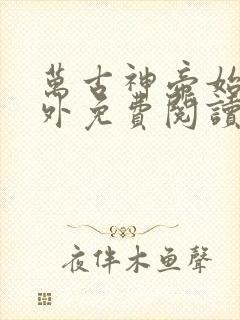 萬古神帝始
外免費閱讀
夜伴木鱼聲